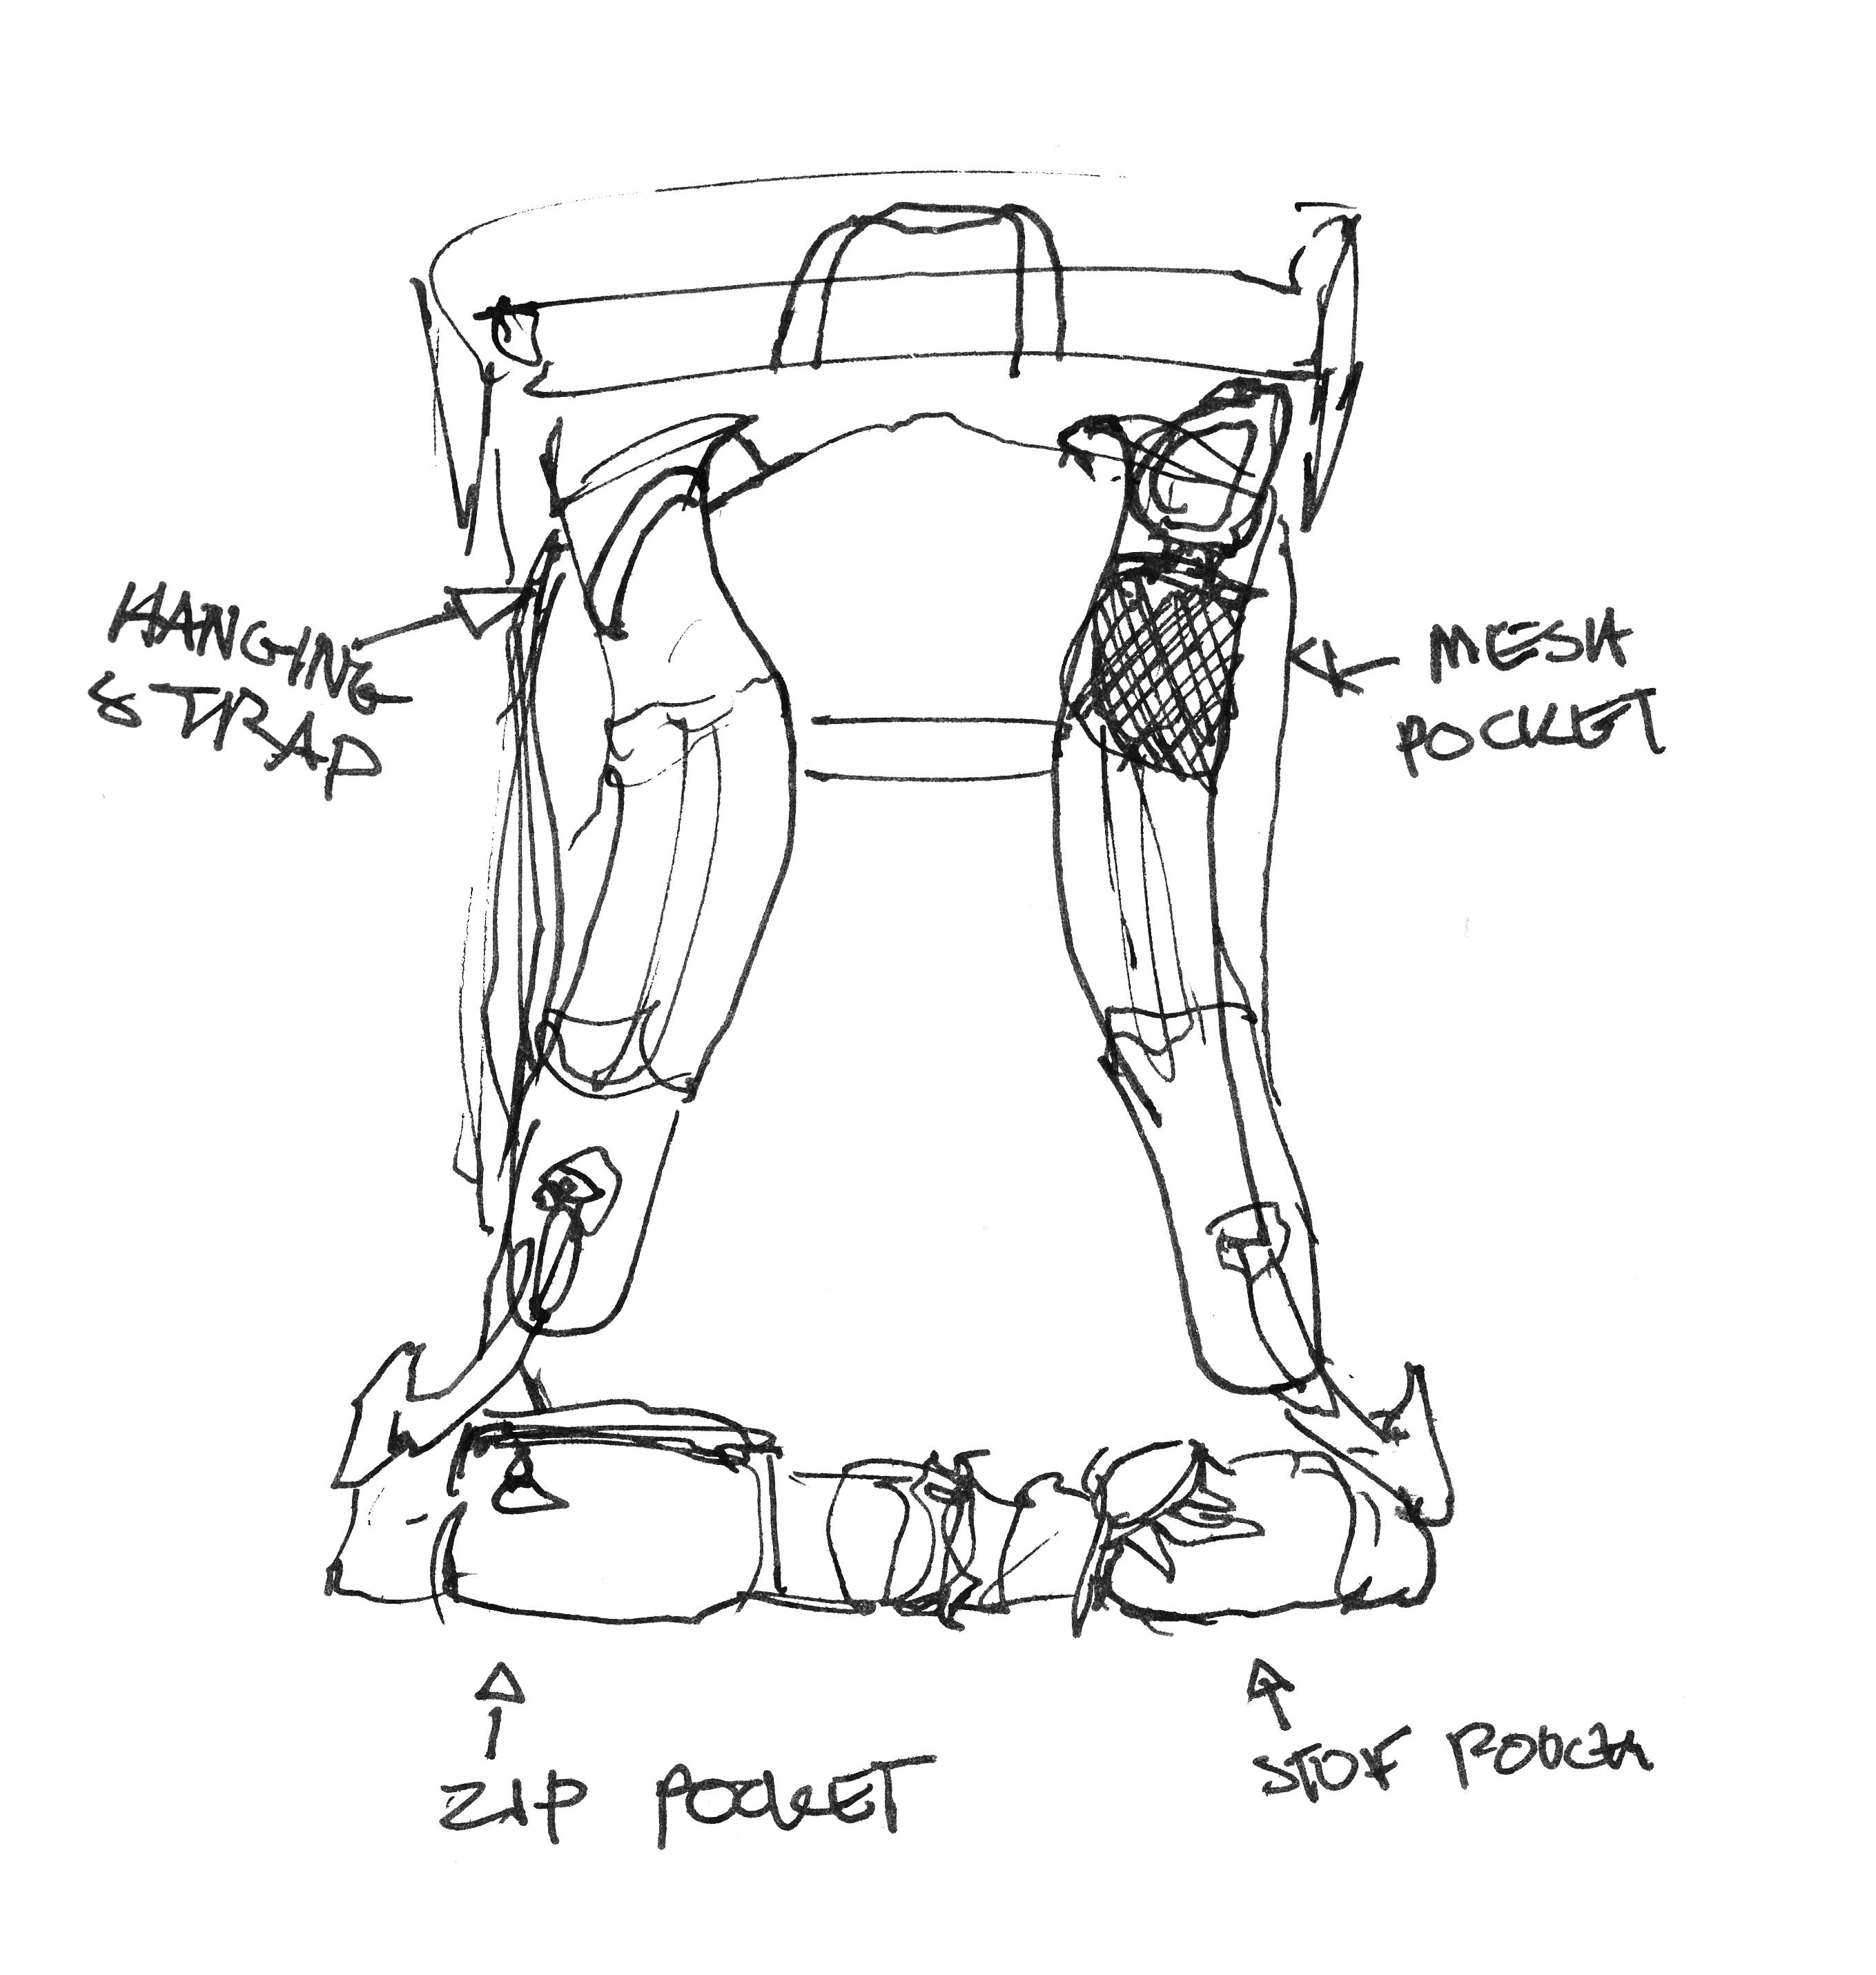 HANGING
STRAP
MESH
POCKET
ZIP POCKET
STOF POUCH